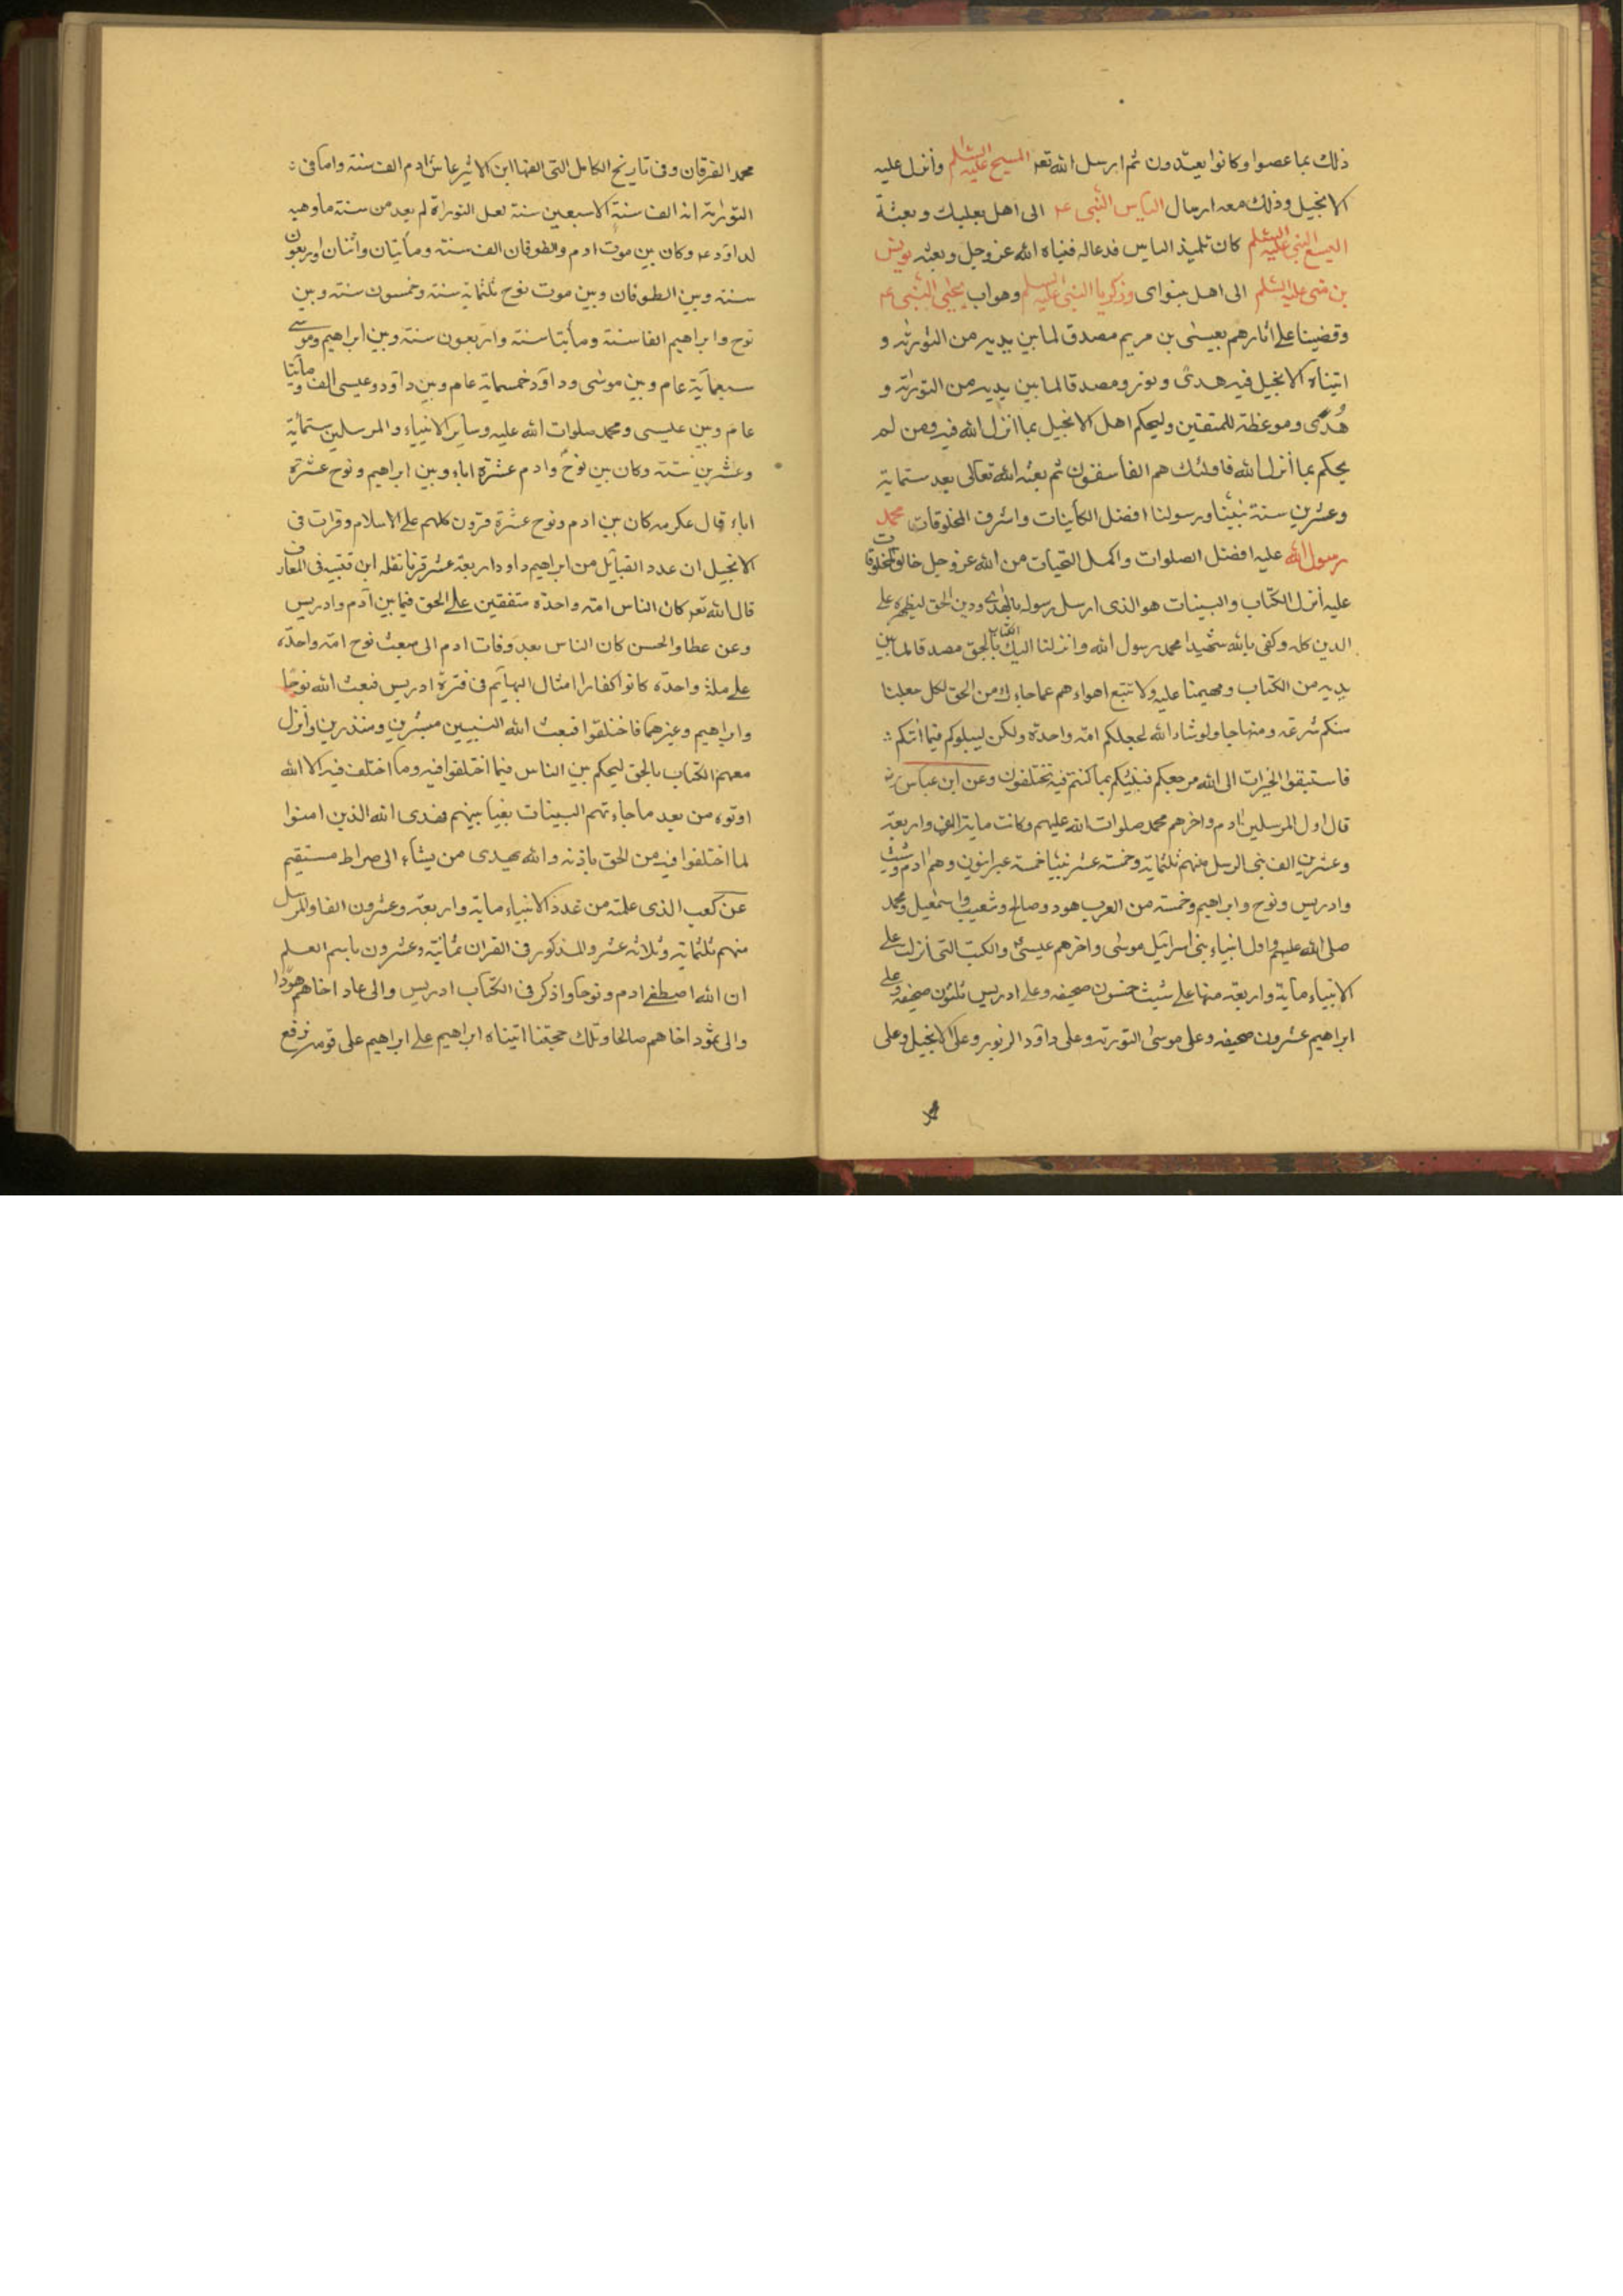 ذلك بما عصوا وكانوا يعتدون ثم ارسل الله تعر المسيح عليه السلم وأنزل عليه
الانجيل وذلك معه ارسال الياس النبى عم الى اهل بعلبك وبعثة
اليسع النبى عليه السلم كان تلميذ الياس فدعا له فنباه الله عز وجل وبعثه يونس
بن متى عليه السلم الى اهل نينواى وزكريا النبى عليه السلم وهو اب يحيى النبى عم
وقفينا على اثارهم بعيسى بن مريم مصدق لما بين يديه من التورية و
اتيناه الانجيل فيه هدى ونور ومصدقا لما بين يديه من التورية و
هُدًى وموعظة للمتقين وليحكم اهل الانجيل بما انزل الله فيه ومن لم
يحكم بما أنزل الله فاولئك هم الفاسقون ثم بعثه الله تعالى بعد ستماية
وعشرين سنة نبينا ورسولنا افضل الكآينات واشرف المخلوقات محمد
رسول الله عليه افضل الصلوات واكمل التحيات من الله عز وجل خالق المخلوقات
عليه أنزل الكتاب والبينات هو الذى ارسل رسوله بالهدى ودين الحق ليظهره على
الدين كله وكفى بالله شهيدا محمد رسول الله وانزلنا اليك الكتاب بالحق مصدقا لما بين
يديه من الكتاب ومهيمنا عليه ولا تتبع اهواءهم عما جاءك من الحق لكل جعلنا
منكم شرعة ومنهاجا ولو شاء الله لجعلكم امة واحدة ولكن ليبلوكم فيما اتيكم
فاستبقوا الخيرات الى الله مرجعكم فينبئكم بما كنتم فيه تختلفون وعن ابن عباس رض
قال اول المرسلين ادم واخرهم محمد صلوات الله عليهم وكانت ماية الف واربعة
وعشرين الف نبى الرسل منهم ثلثماية وخمسة عشر نبيا خمسة عبرانيون وهم ادم وشيث
وادريس ونوح وابراهيم وخمسة من العرب هود وصالح وشعيب واسمعيل ومحمد
صلى الله عليهم واول انبياء بنى اسرائيل موسى واخرهم عيسى والكتب التى انزلت على
الانبياء ماية واربعة منها على شيث خمسون صحيفه وعلى ادريس ثلثون صحيفه وعلى
ابراهيم عشرون صحيفه وعلى موسى التورية وعلى داود الزبور وعلى الانجيل وعلى
محمد
محمد الفرقان وفى تاريخ الكامل التى الفها ابن الاثير عاش ادم الف سنة واما فى
التورية انه الف سنة الا سبعين سنة لعل التوراة لم يعد من سنة ما وهبه
لداود عم وكان بين موت ادم والطوفان الف سنة ومأيتان واثنان واربعون
سنة وبين الطوفان وبين موت نوح ثلثماية سنة وخمسون سنة وبين
نوح وابراهيم الفا سنة ومأيتا سنة واربعون سنة وبين ابراهيم وموسى
سبعمآية عام وبين موسى وداود خمسماية عام وبين داود وعيسى الف ومأيتا
عام وبين عيسى ومحمد صلوات الله عليه وساير الانبياء والمرسلين ستمائية
وعشرين سنة وكان بين نوح وادم عشرة اباء وبين ابراهيم ونوح عشرة
اباء قال عكرمه كان بين ادم ونوح عشرة قرون كلهم على الاسلام وقرات فى
الانجيل ان عدد القبآيل من ابراهيم داود اربعة عشر قرنا نقله ابن قتيبه فى المعارف
قال الله تعر كان الناس امة واحدة متفقين على الحق فيما بين آدم وادريس
وعن عطا والحسن كان الناس بعد وفات ادم الى مبعث نوح امة واحدة
على ملة واحدة كانوا كفارا امثال البهآيم فى فترة ادريس فبعث الله نوحًا
وابراهيم وغيرهما فاختلفوا فبعث الله النبيين مبشرين ومنذرين وأنزل
معهم الكتاب بالحق ليحكم بين الناس فيما اختلفوا فيه وما اختلف فيه الا الله
اوتوه من بعد ما جاءتهم البينات بغيا بينهم فهدى الله الذين امنوا
لما اختلفوا فيه من الحق باذنه والله يهدى من يشآء الى صراط مستقيم
عن كعب الذى علمته من عدد الانبياء ماية واربعة وعشرون الفا والمرسل
منهم ثلثماية وثلاثة عشر والمذكور فى القران ثمانية وعشرون باسم العلم
ان الله اصطفى ادم ونوحا واذكر فى الكتاب ادريس والى عاد اخاهم هودا
والى ثمود اخاهم صالحا وتلك حجتنا اتيناه ابراهيم على ابراهيم على قومه نرفع